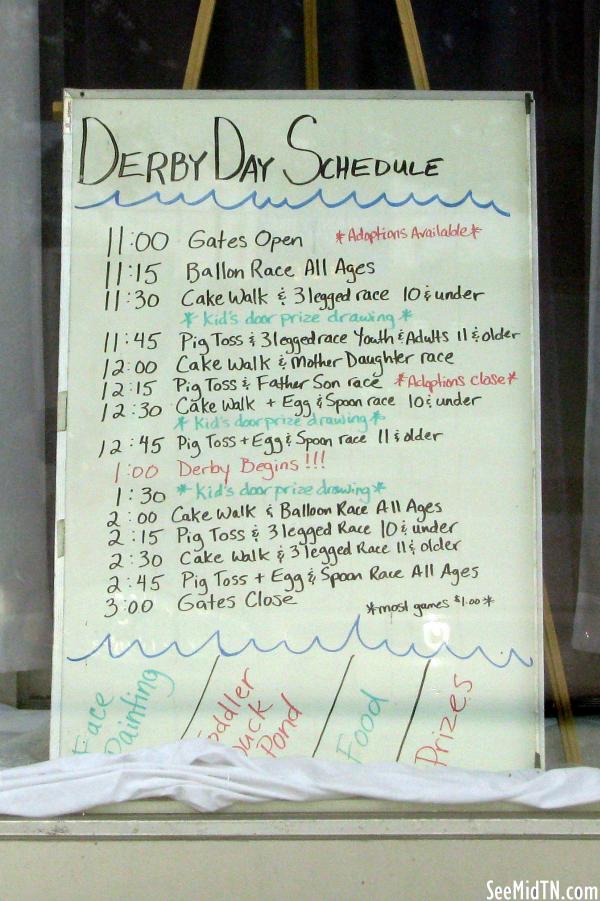 DERBY DAY SCHEDULE
11:00 Gates Open *Adoptions Available*
11:15 Ballon Race All Ages
11:30 Cake Walk & 3 legged race 10 & under
* Kid's door prize drawing *
11:45 Pig Toss & 3 legged race Youth & Adults 11 & older
12:00 Cake Walk & Mother Daughter race
12:15 Pig Toss & Father Son race *Adoptions close*
12:30 Cake Walk + Egg & Spoon race 10 & under
* Kid's door prize drawing *
12:45 Pig Toss + Egg & Spoon race 11 & older
1:00 Derby Begins !!!
1:30 * Kid's door prize drawing *
2:00 Cake Walk & Balloon Race All Ages
2:15 Pig Toss & 3 legged Race 10 & under
2:30 Cake Walk & 3 legged Race 11 & older
2:45 Pig Toss + Egg & Spoon Race All Ages
3:00 Gates Close *most games $1.00*
Face
Painting
Toddler
Duck
Pond
Food
Prizes
SeeMidTN.com